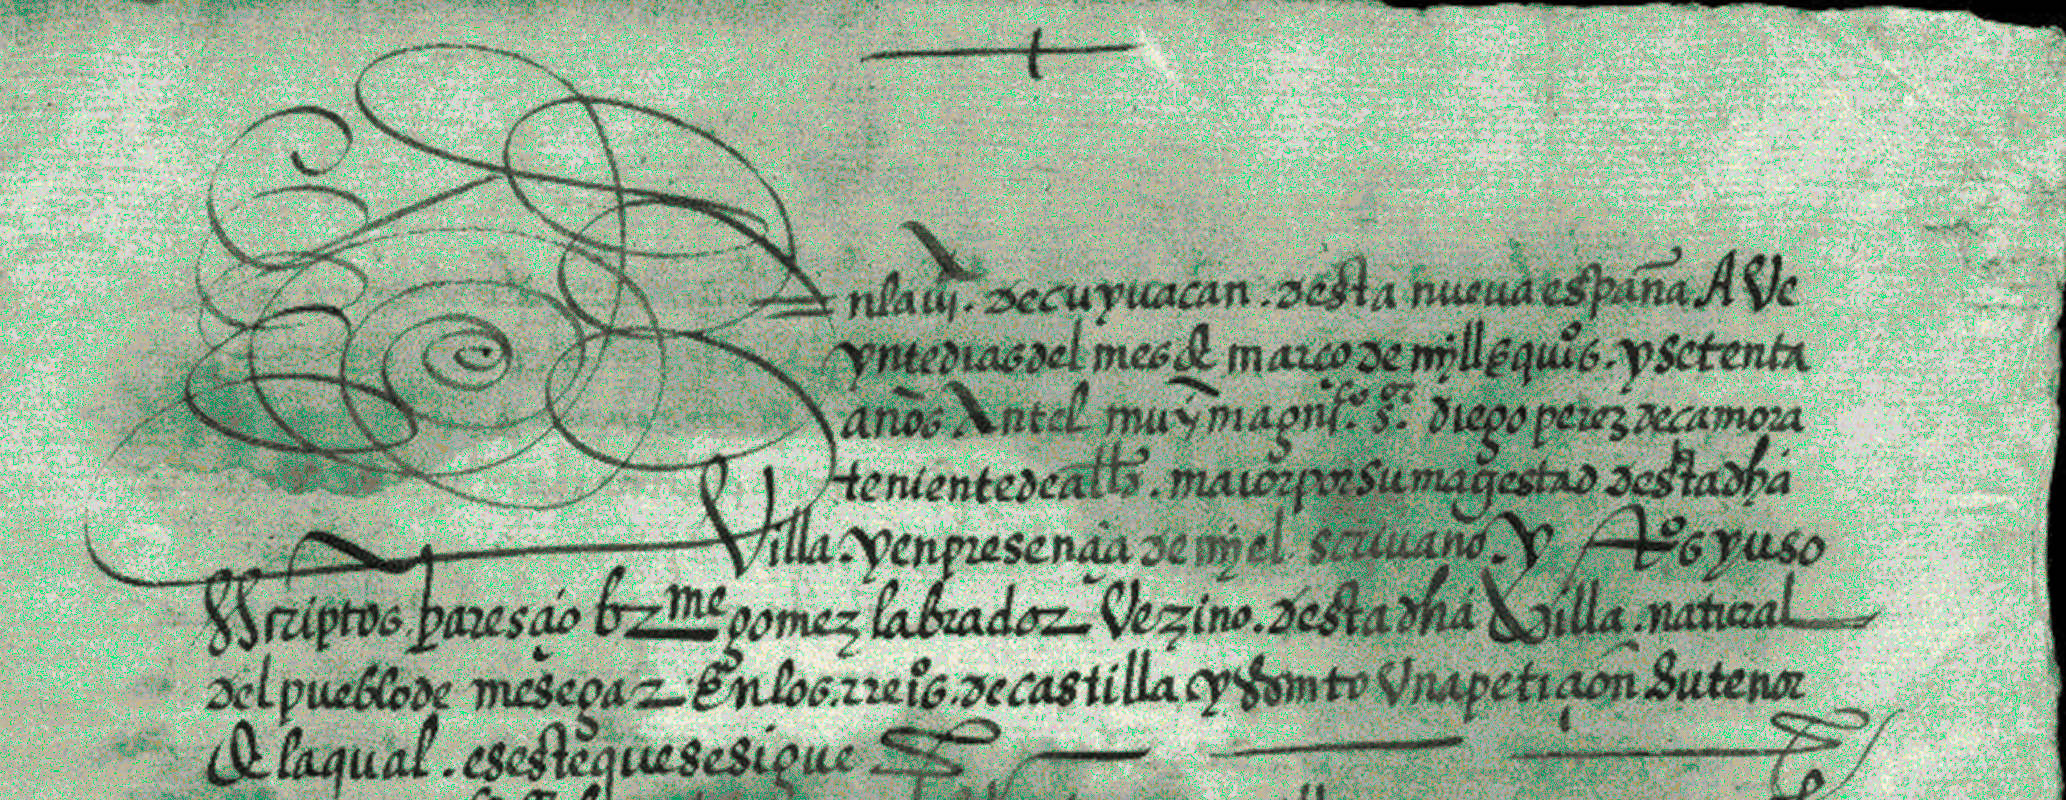 En la uia. de cuyuacan. desta nueua españa A Ve
ynte dias del mes de março de mjll E quios. y setenta
años Antel muy magnifco. sor. diego perez de camora
teniente de allde. maior por su magestad desta dha
Villa. y en presençia de mj el scriuano. y tos yuso
Scriptos. paresçio brme gomez labrador Vezino. desta dha Villa. natural
del pueblo de mesegar. En los. rreios. de castilla y presento Vna petiçion Su tenor
de la qual. es este que se sigue